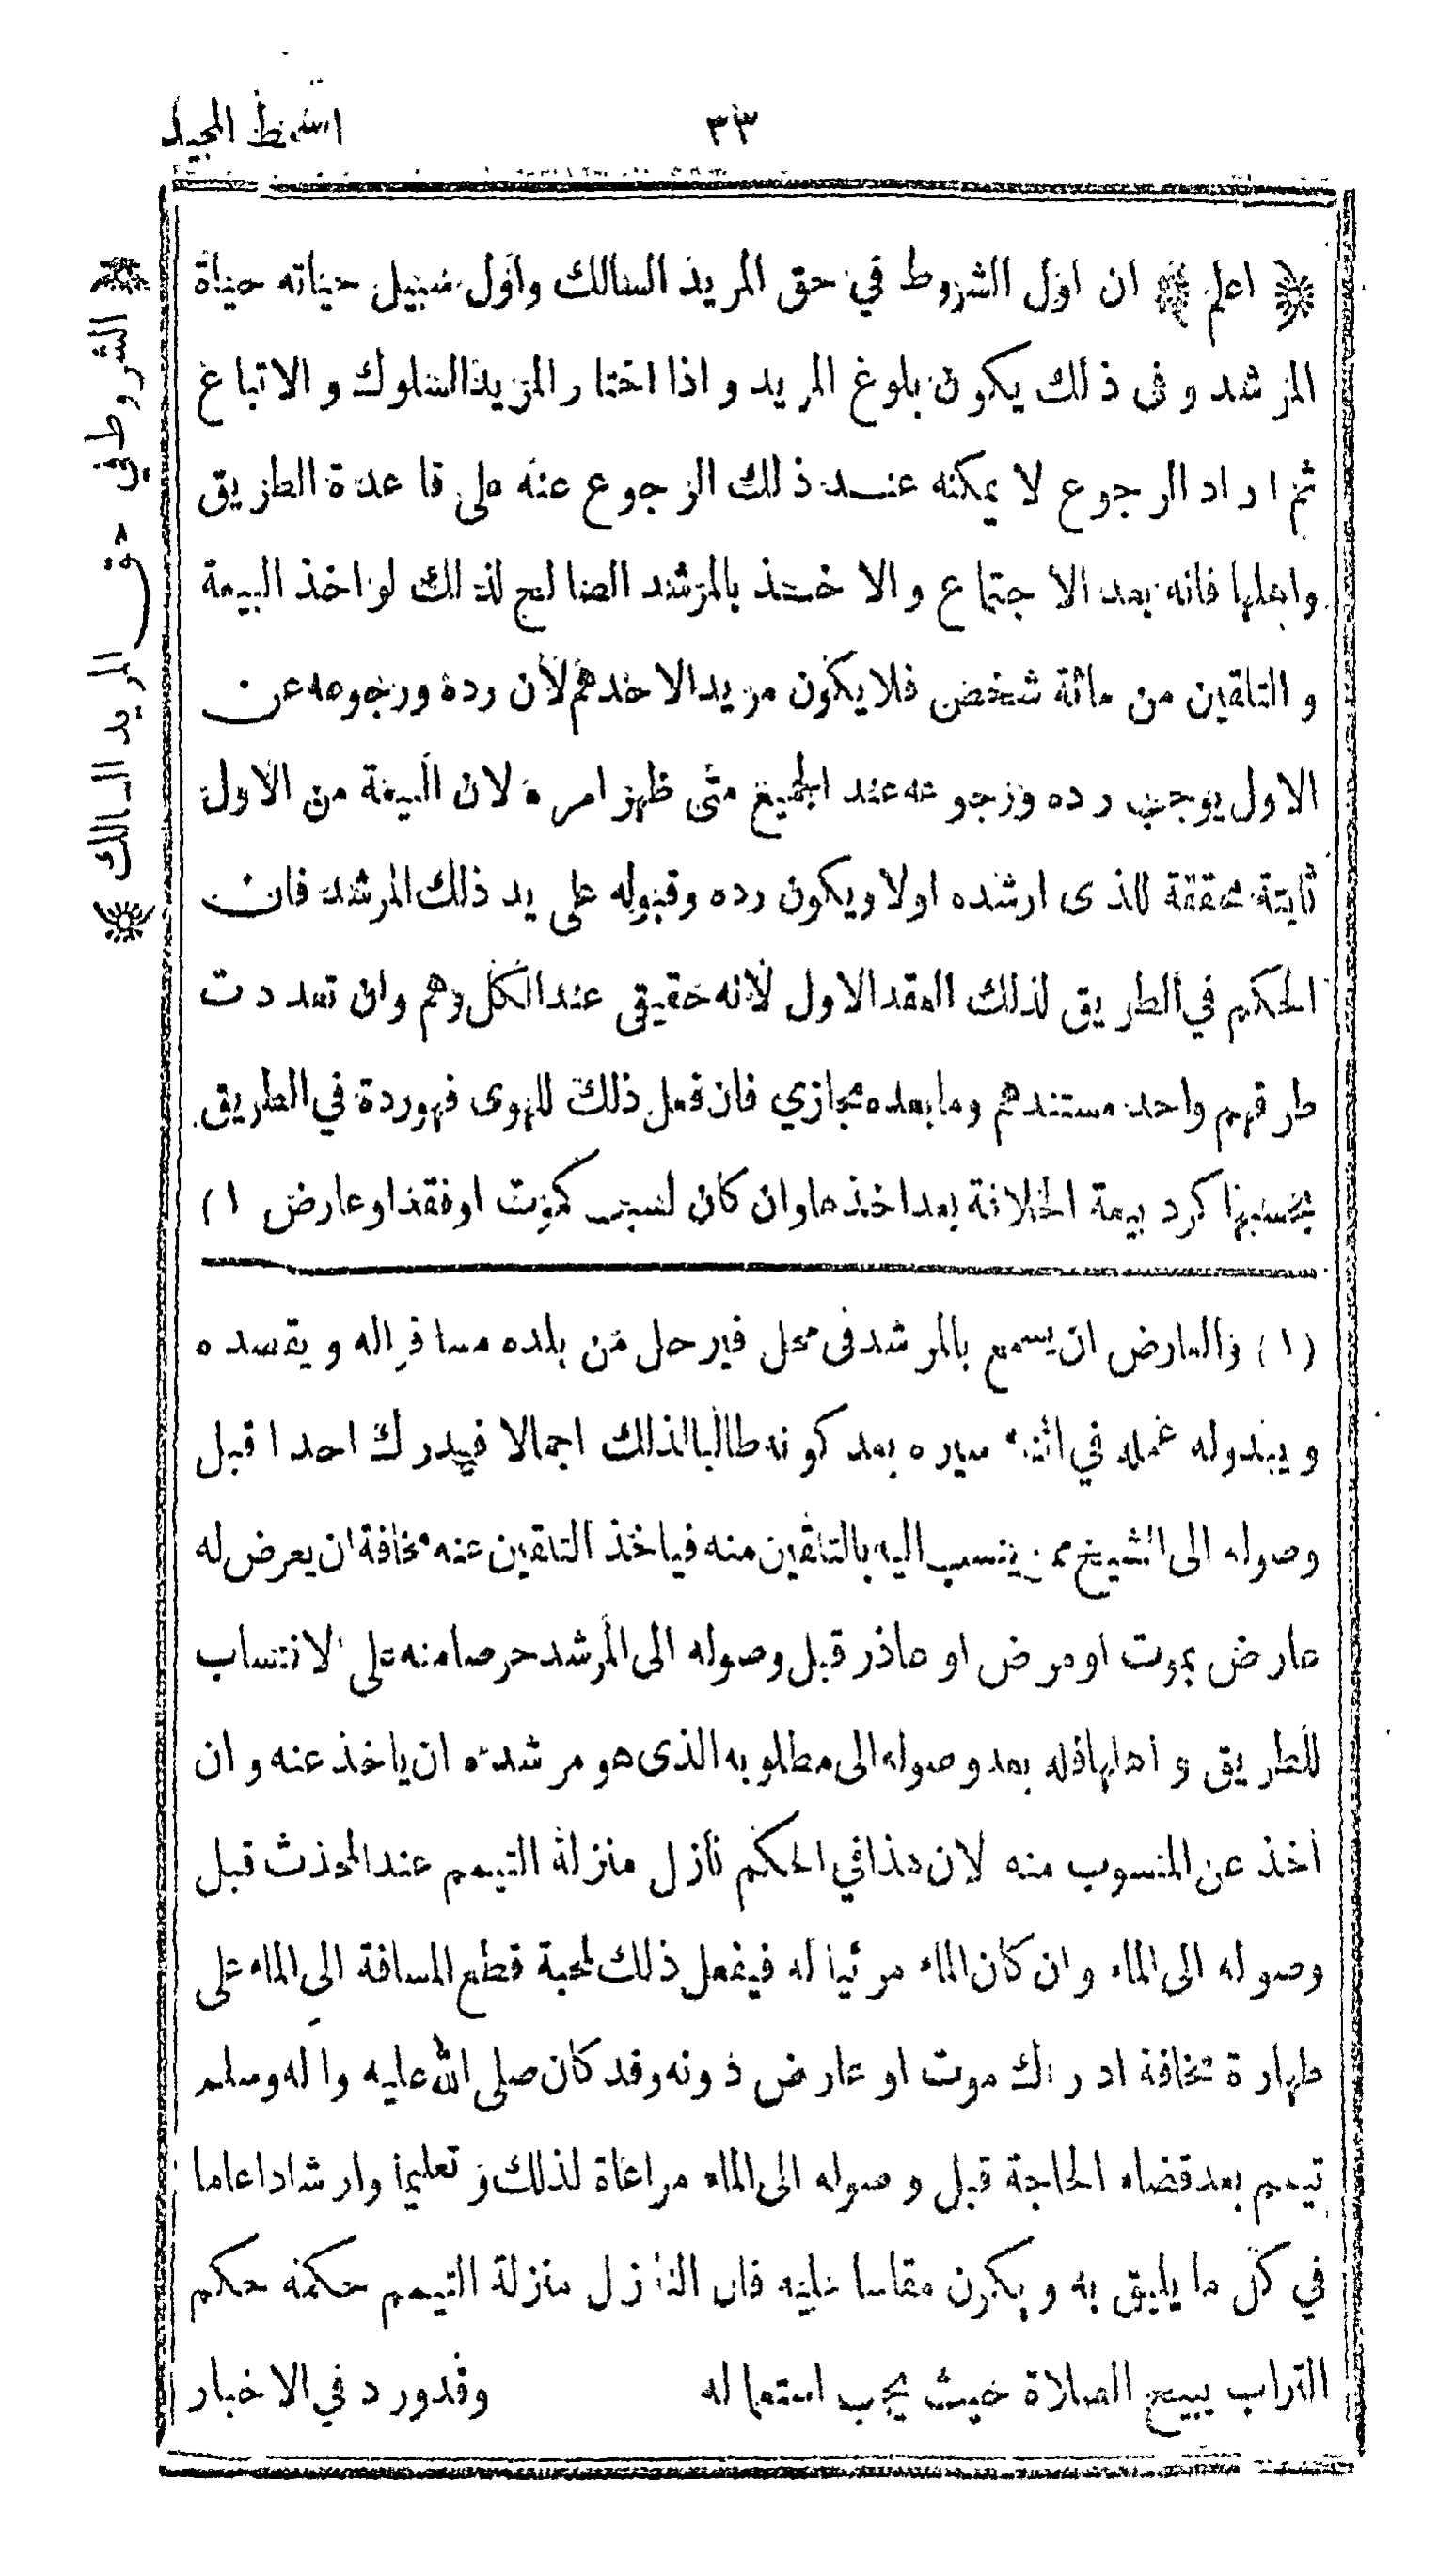 السمط المجيد
٣٣
اعلم ان اول الشروط في حق المريد السالك واول سبيل حياته حياة
المرشد وفى ذلك يكون بلوغ المريد واذا اختار المريد السلوك والاتباع
ثم اراد الرجوع لا يمكنه عند ذلك الرجوع عنه على قاعدة الطريق
واهلها فانه بعد الاجتماع والاخذ بالمرشد الصالح لذلك لو اخذ البيعة
والتلقين من مائة شخص فلا يكون مريدا لاحدهم لأن رده ورجوعه عن
الاول يوجب رده ورجوعه عند الجميع متى ظهر امره لان البيعة من الاول
ثابتة محققة للذى ارشده اولا ويكون رده وقبوله على يد ذلك المرشد فان
الحكم في الطريق لذلك العقد الاول لأنه حقيقى عند الكل وهم وان تعددت
طرقهم واحد مستندهم وما بعده مجازي فان فعل ذلك للهوى فهو ردة في الطريق
بحسبها كرد بيعة الخلافة بعد اخذها وان كان لسبب كموت او فقد او عارض (١
(١) والعارض ان يسمع بالمرشد فى محل فيرحل من بلده مسافر اله ويقصده
ويبدوله عمله في اثنـ سيره بعد كونه طالبا لذلك اجمالا فيدرك احدا قبل
وصوله الى الشيخ ممن ينسب اليه بالتلقين منه فياخذ التلقين عنه مخافة ان يعرض له
عارض بموت او مرض او عاذر قبل وصوله الى المرشد حرصا منه على الانتساب
للطريق وأهلها فله بعد وصوله الى مطلوبه الذى هو مرشده ان ياخذ عنه وان
أخذ عن المنسوب منه لان هذا في الحكم نازل منزلة التيمم عند المحدث قبل
وصوله الى الماء وان كان الماء مرئيا له فيفعل ذلك لمحبة قطع المسافة الى الماء على
طهارة مخافة ادراك موت او عارض دونه وقد كان صلى الله عليه واله وسلم
تيمم بعد قضاء الحاجة قبل وصوله الى الماء مراعاة لذلك وتعليما وارشادا عاما
في كل ما يليق به ويكون مقاسا عليه فان النازل منزلة التيمم حكمه حكم
التراب يبيح الصلاة حيث يجب استعماله وقد ورد في الاخبار
الشروط في حق المريد السالك